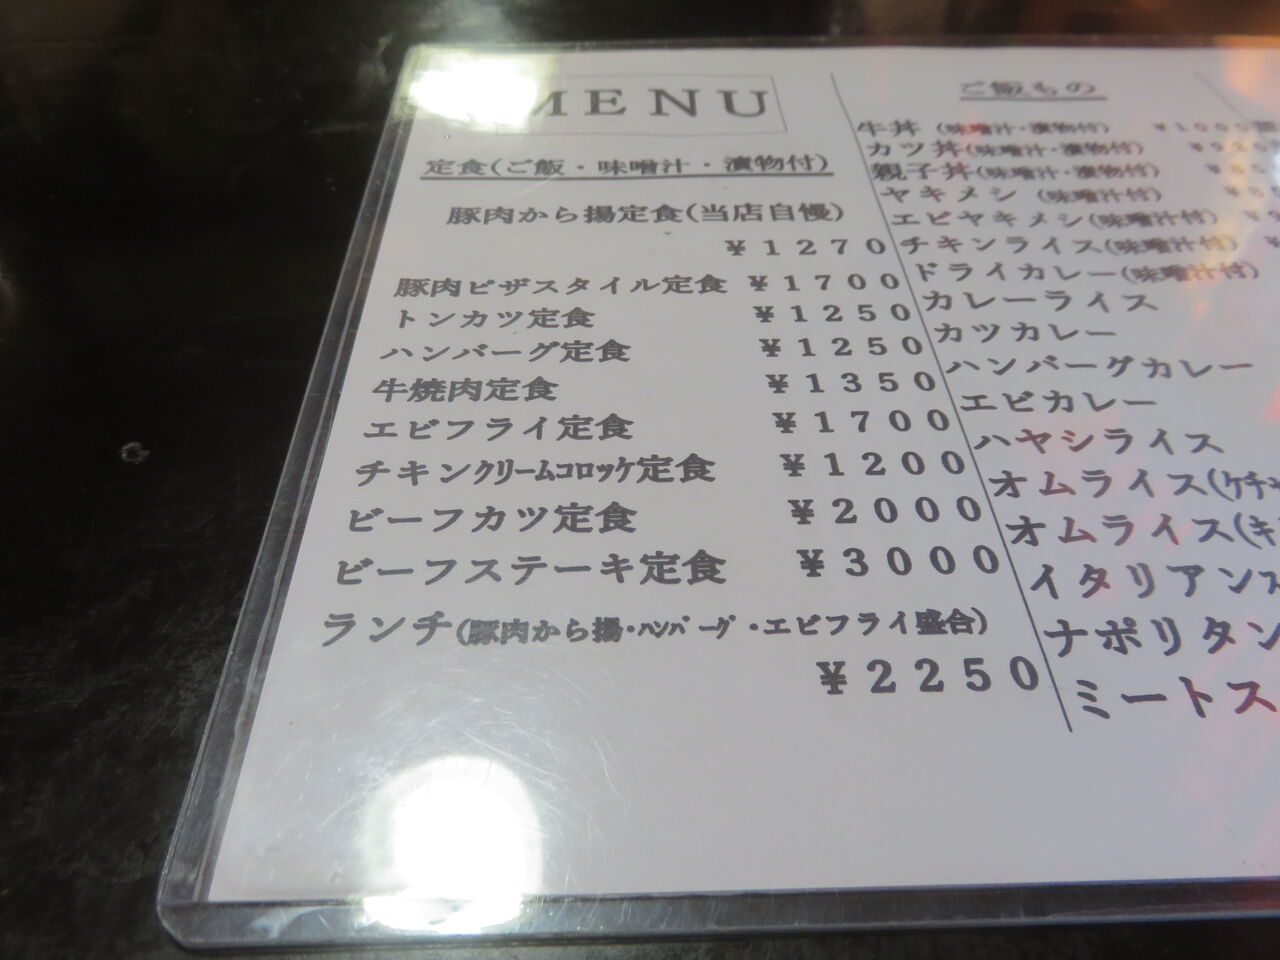 MENU
定食(ご飯・味噌汁・漬物付)
豚肉から揚定食(当店自慢)
¥1270
豚肉ピザスタイル定食 ¥1700
トンカツ定食 ¥1250
ハンバーグ定食 ¥1250
牛焼肉定食 ¥1350
エビフライ定食 ¥1700
チキンクリームコロッケ定食 ¥1200
ビーフカツ定食 ¥2000
ビーフステーキ定食 ¥3000
ランチ(豚肉から揚・ハンバーグ・エビフライ盛合)
¥2250
ご飯もの
牛丼 (味噌汁・漬物付)
カツ丼(味噌汁・漬物付)
親子丼(味噌汁・漬物付)
ヤキメシ (味噌汁付)
エビヤキメシ(味噌汁付)
チキンライス(味噌汁付)
ドライカレー(味噌汁付)
カレーライス
カツカレー
ハンバーグカレー
エビカレー
ハヤシライス
オムライス(ケチャ
オムライス(キ
イタリアンス
ナポリタン
ミートス